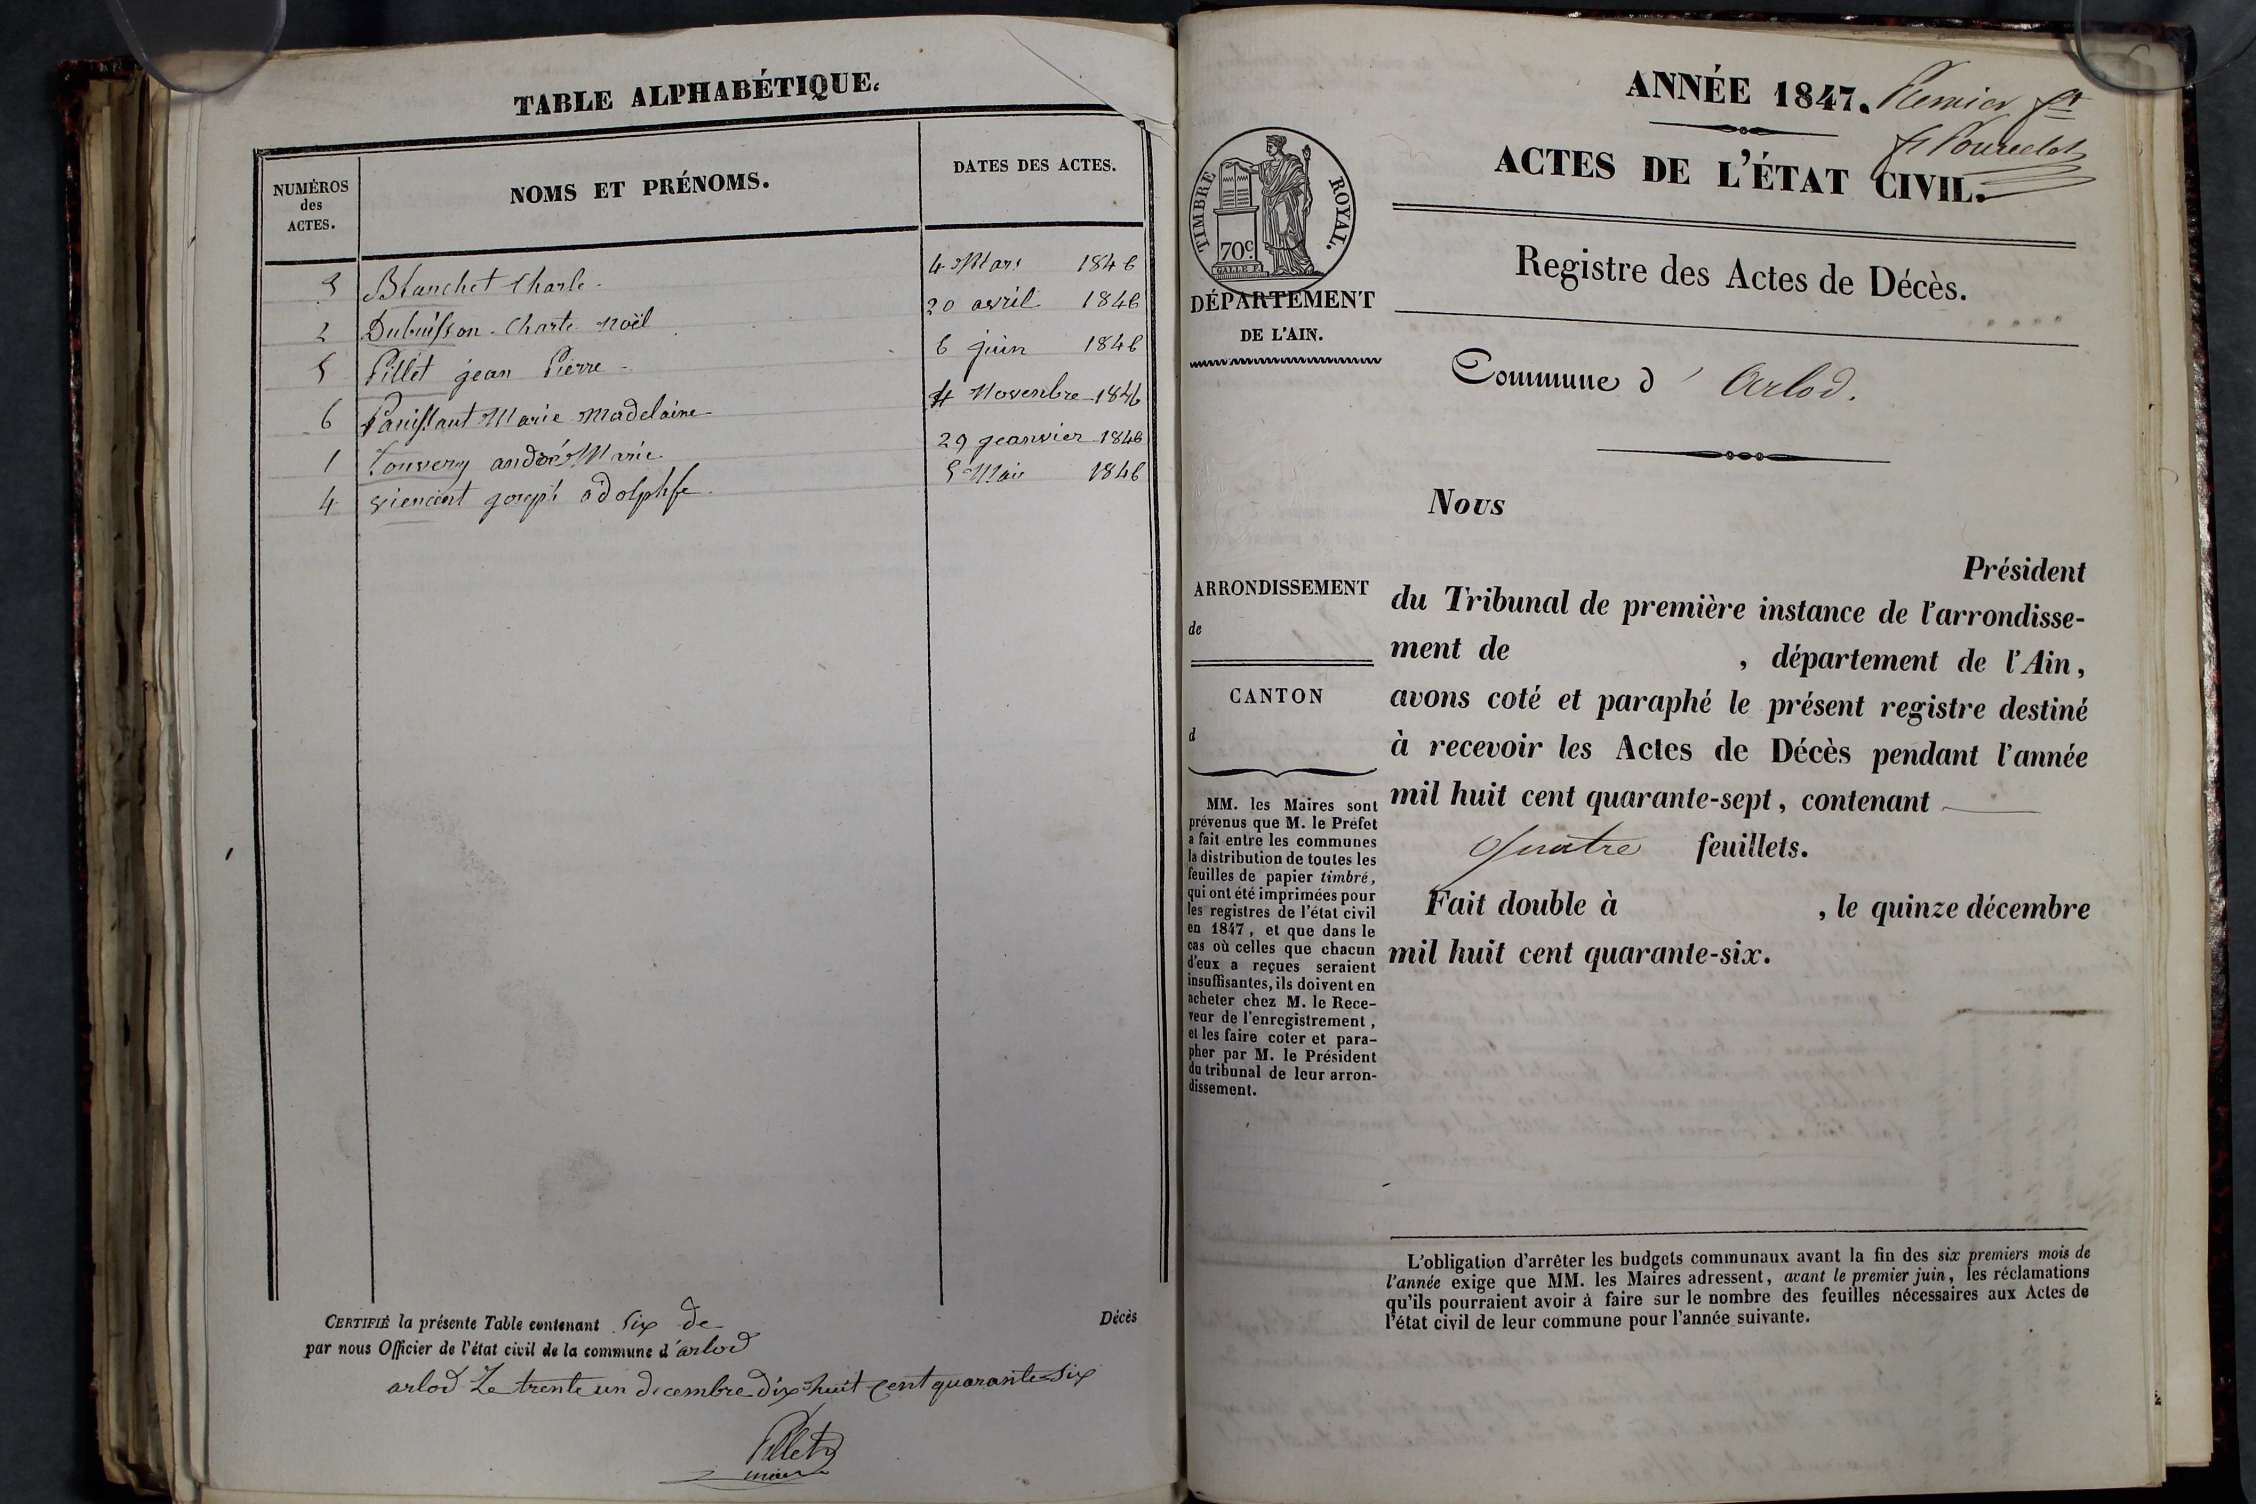 TABLE ALPHABÉTIQUE.
NUMÉROS
des
ACTES.
NOMS ET PRÉNOMS.
DATES DES ACTES.
Blanchet Charle 4 Mars 1846
2 Dubuisson Charle Noël 20 avril 1846
5 Pillet jean Pierre 6 juin 1846
6 Panissaut Marie Madelaine 4 Novenbre 1846
1 andré Marie 29 geanvier 1846
4 josephe adolphe 5 Mai 1846
CERTIFIÉ la présente Table contenant six de Décès
par nous Officier de l'état civil de la commune d'arlod
arlod Le trente un decembre dix huit cent quarante six
Pillet
maire
ANNÉE 1847. Premier
ACTES DE L'ÉTAT CIVIL.
Registre des Actes de Décès.
Commune d' Arlod.
TIMBRE ROYAL.
70c
DÉPARTEMENT
DE L'AIN.
Nous
Président
du Tribunal de première instance de l'arrondisse-
ment de , département de l'Ain,
avons coté et paraphé le présent registre destiné
à recevoir les Actes de Décès pendant l'année
mil huit cent quarante-sept, contenant
quatre feuillets.
Fait double à , le quinze décembre
mil huit cent quarante-six.
ARRONDISSEMENT
de
CANTON
d
MM. les Maires sont
prévenus que M. le Préfet
a fait entre les communes
la distribution de toutes les
feuilles de papier timbré,
qui ont été imprimées pour
les registres de l'état civil
en 1847, et que dans le
cas où celles que chacun
d'eux a reçues seraient
insuffisantes, ils doivent en
acheter chez M. le Rece-
veur de l'enregistrement,
et les faire coter et para-
pher par M. le Président
du tribunal de leur arron-
dissement.
L'obligation d'arrêter les budgets communaux avant la fin des six premiers mois de
l'année exige que MM. les Maires adressent, avant le premier juin, les réclamations
qu'ils pourraient avoir à faire sur le nombre des feuilles nécessaires aux Actes de
l'état civil de leur commune pour l'année suivante.